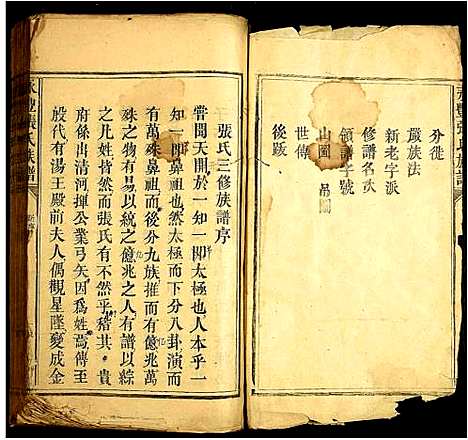 分徙
嚴族法
新老字派
修譜名次
領譜字號
山圖 吊圖
世傳
後䟦
張氏三修族譜序
嘗聞天開於一知一卽太極也人本乎一
知一卽鼻祖也然太極而下分八卦演而
有萬殊鼻祖而後分九族推而有億兆萬
殊之物有易以統之億兆之人有譜以綜
之凡姓皆然而張氏有不然乎稽其 貴
府係出清河揮公業弓矢因為姓焉傳至
殷代有湯王殿前夫人偶觀星墜變成金
永豐張氏族譜